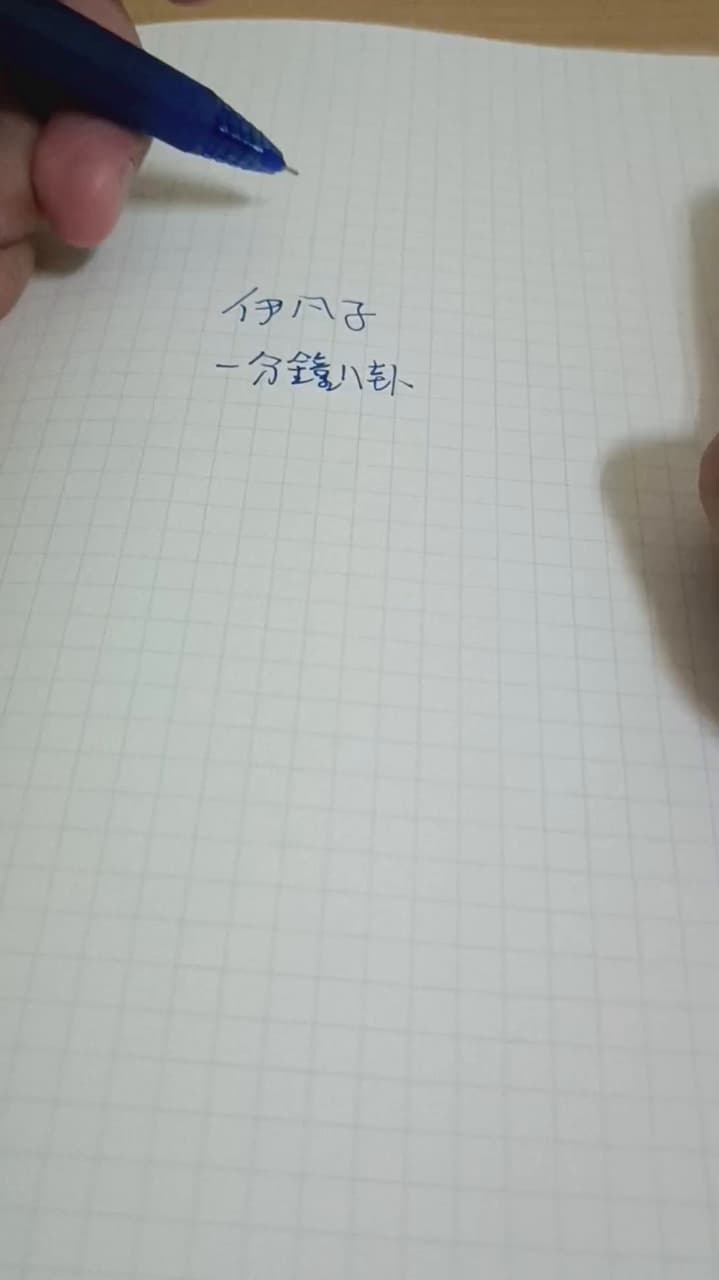 伊凡子
一分鐘八卦